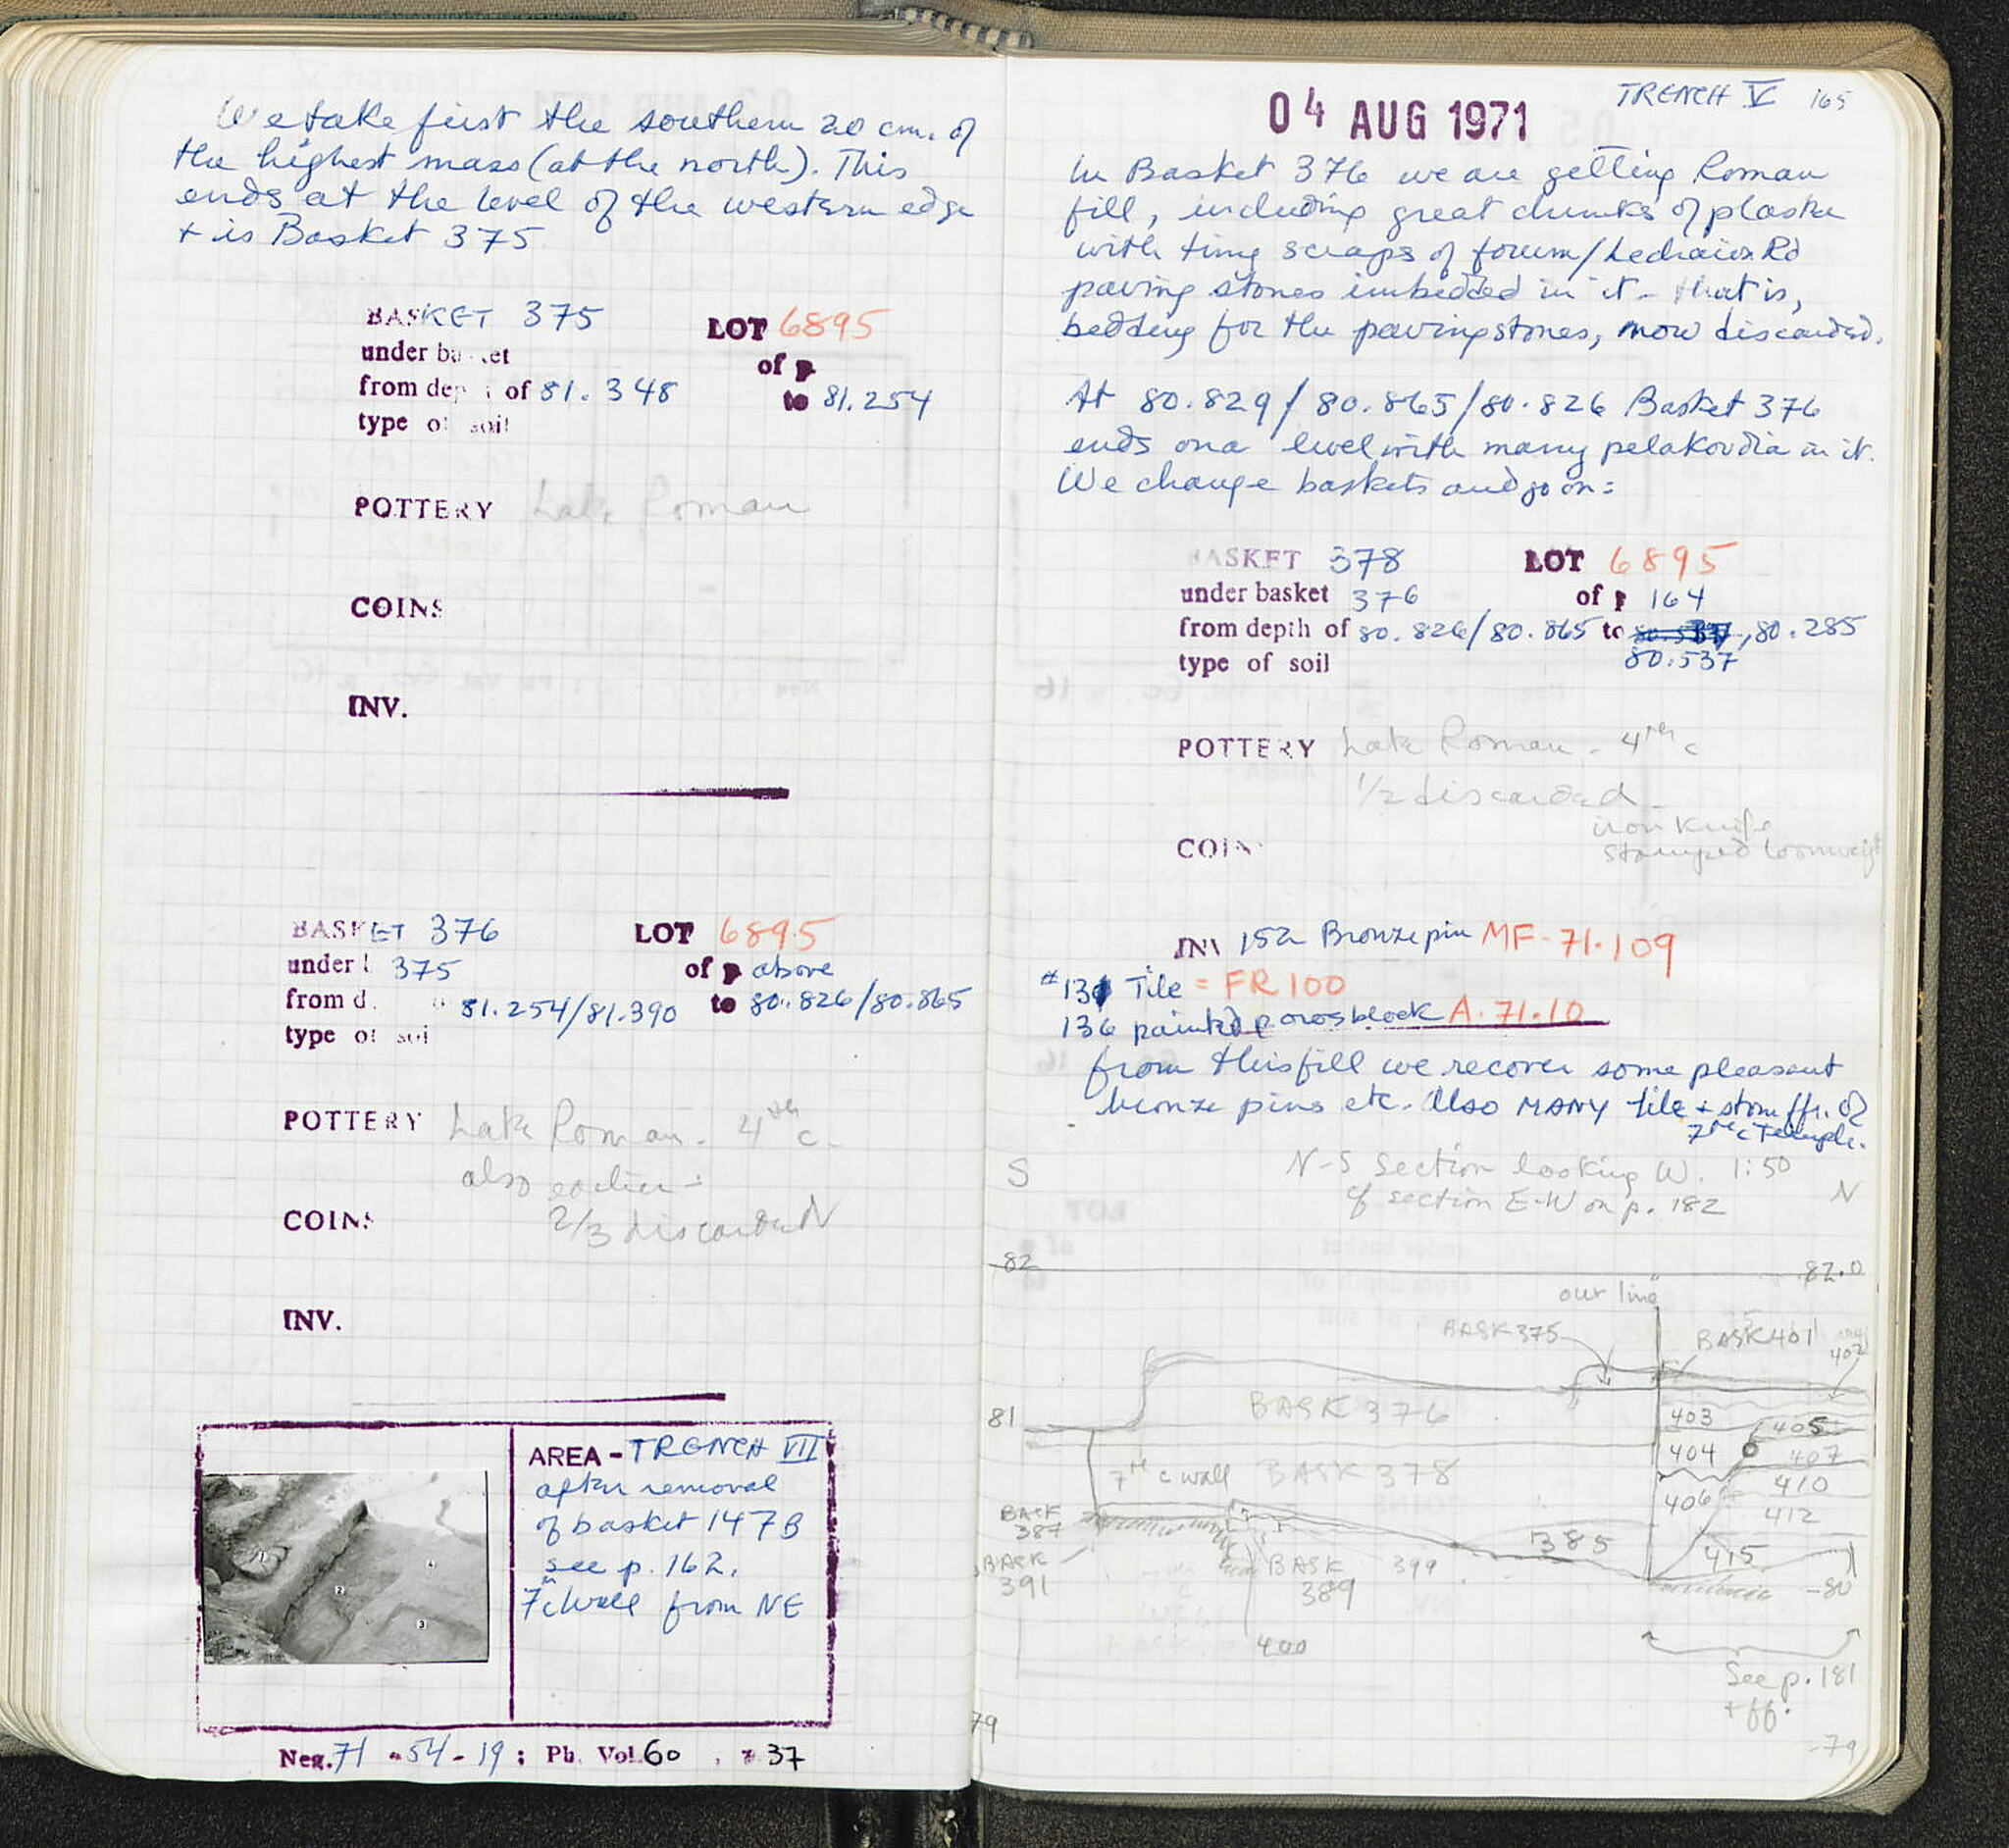 We take first the southern 20 cm. of
the highest mass (at the north). This
ends at the level of the western edge
+ is Basket 375
BASKET 375 LOT 6895
under basket of p
from depth of 81.348 to 81.254
type of soil
POTTERY Late Roman
COINS
INV.
BASKET 376 LOT 6895
under b 375 of p above
from d. o 81.254/81.390 to 80.826/80.865
type of soil
POTTERY Late Roman - 4th c.
also earlier -
COINS 2/3 discarded
INV.
AREA - TRENCH VII
after removal
of basket 147B
see p. 162.
7th c wall from NE
1
2
3
4
Neg. 71 - 54 - 19 ; Ph. Vol. 60 , # 37
04 AUG 1971
TRENCH V 165
In Basket 376 we are getting Roman
fill, including great chunks of plaster
with tiny scraps of forum/Lechaion Rd
paving stones imbedded in it - that is,
bedding for the paving stones, now discarded.
At 80.829/80.865/80.826 Basket 376
ends on a level with many pelakoudia in it.
We change baskets and go on:
BASKET 378 LOT 6895
under basket 376 of p 164
from depth of 80.826/80.865 to 80.537, 80.285
type of soil 80.537
POTTERY Late Roman - 4th c
1/2 discarded -
iron knife
COIN stamped loomweight
INV 152 Bronze pin MF-71.109
#131 Tile = FR 100
136 painted poros block A.71.10
from this fill we recover some pleasant
bronze pins etc. Also MANY tile + stone ffr. of
7th c Temple.
S N-S Section looking W. 1:50 N
cf section E-W on p. 182
82 82.0
our line
BASK 375 BASK 401 and 402
81 BASK 376 403 405
404 407
7th c wall BASK 378 410
406 412
BASK 387 385 415
BASK 391 BASK 389 399 -80
400
See p. 181
+ ff.
79 -79